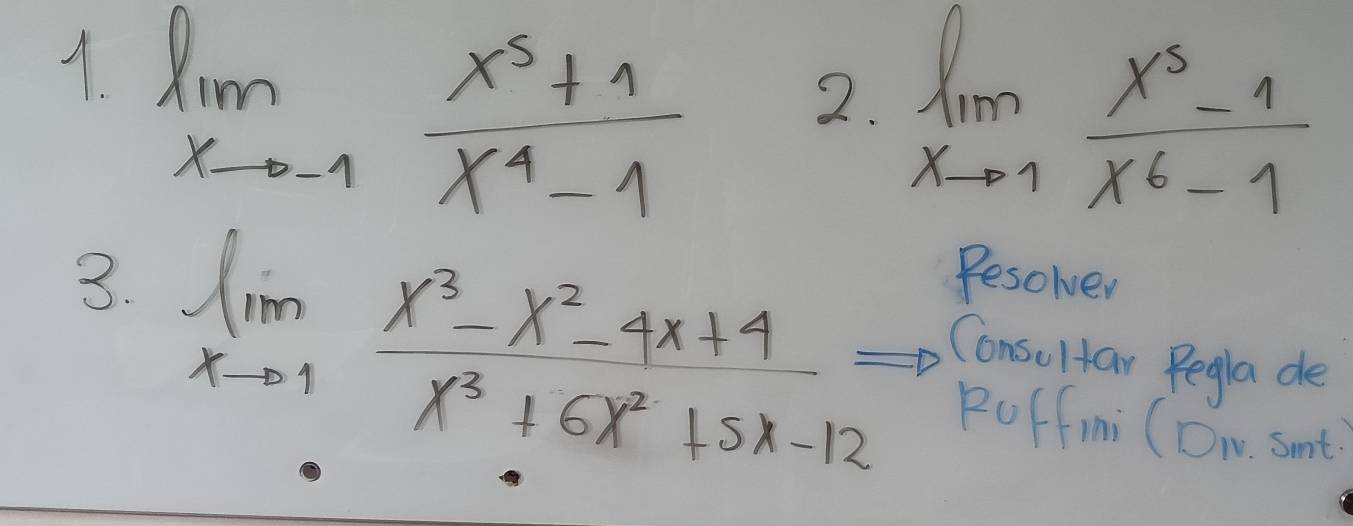 1. lim x→-1 (x^5 + 1)/(x^4 - 1)
2. lim x→1 (x^5 - 1)/(x^6 - 1)
3. lim x→1 (x^3 - x^2 - 4x + 4)/(x^3 + 6x^2 + 5x - 12)
Resolver
⇒ Consultar Regla de
Ruffini (Div. Sint.)